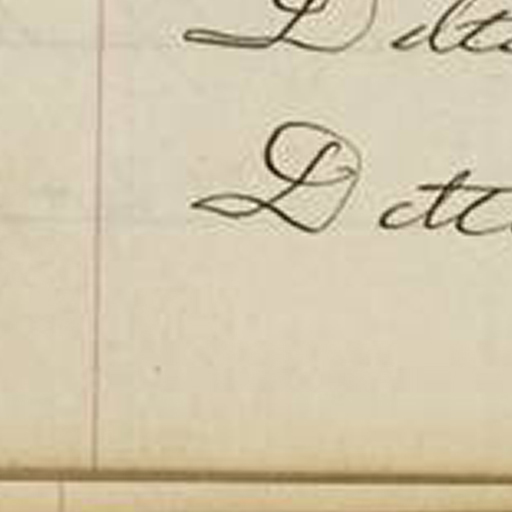 Ditto
Ditto